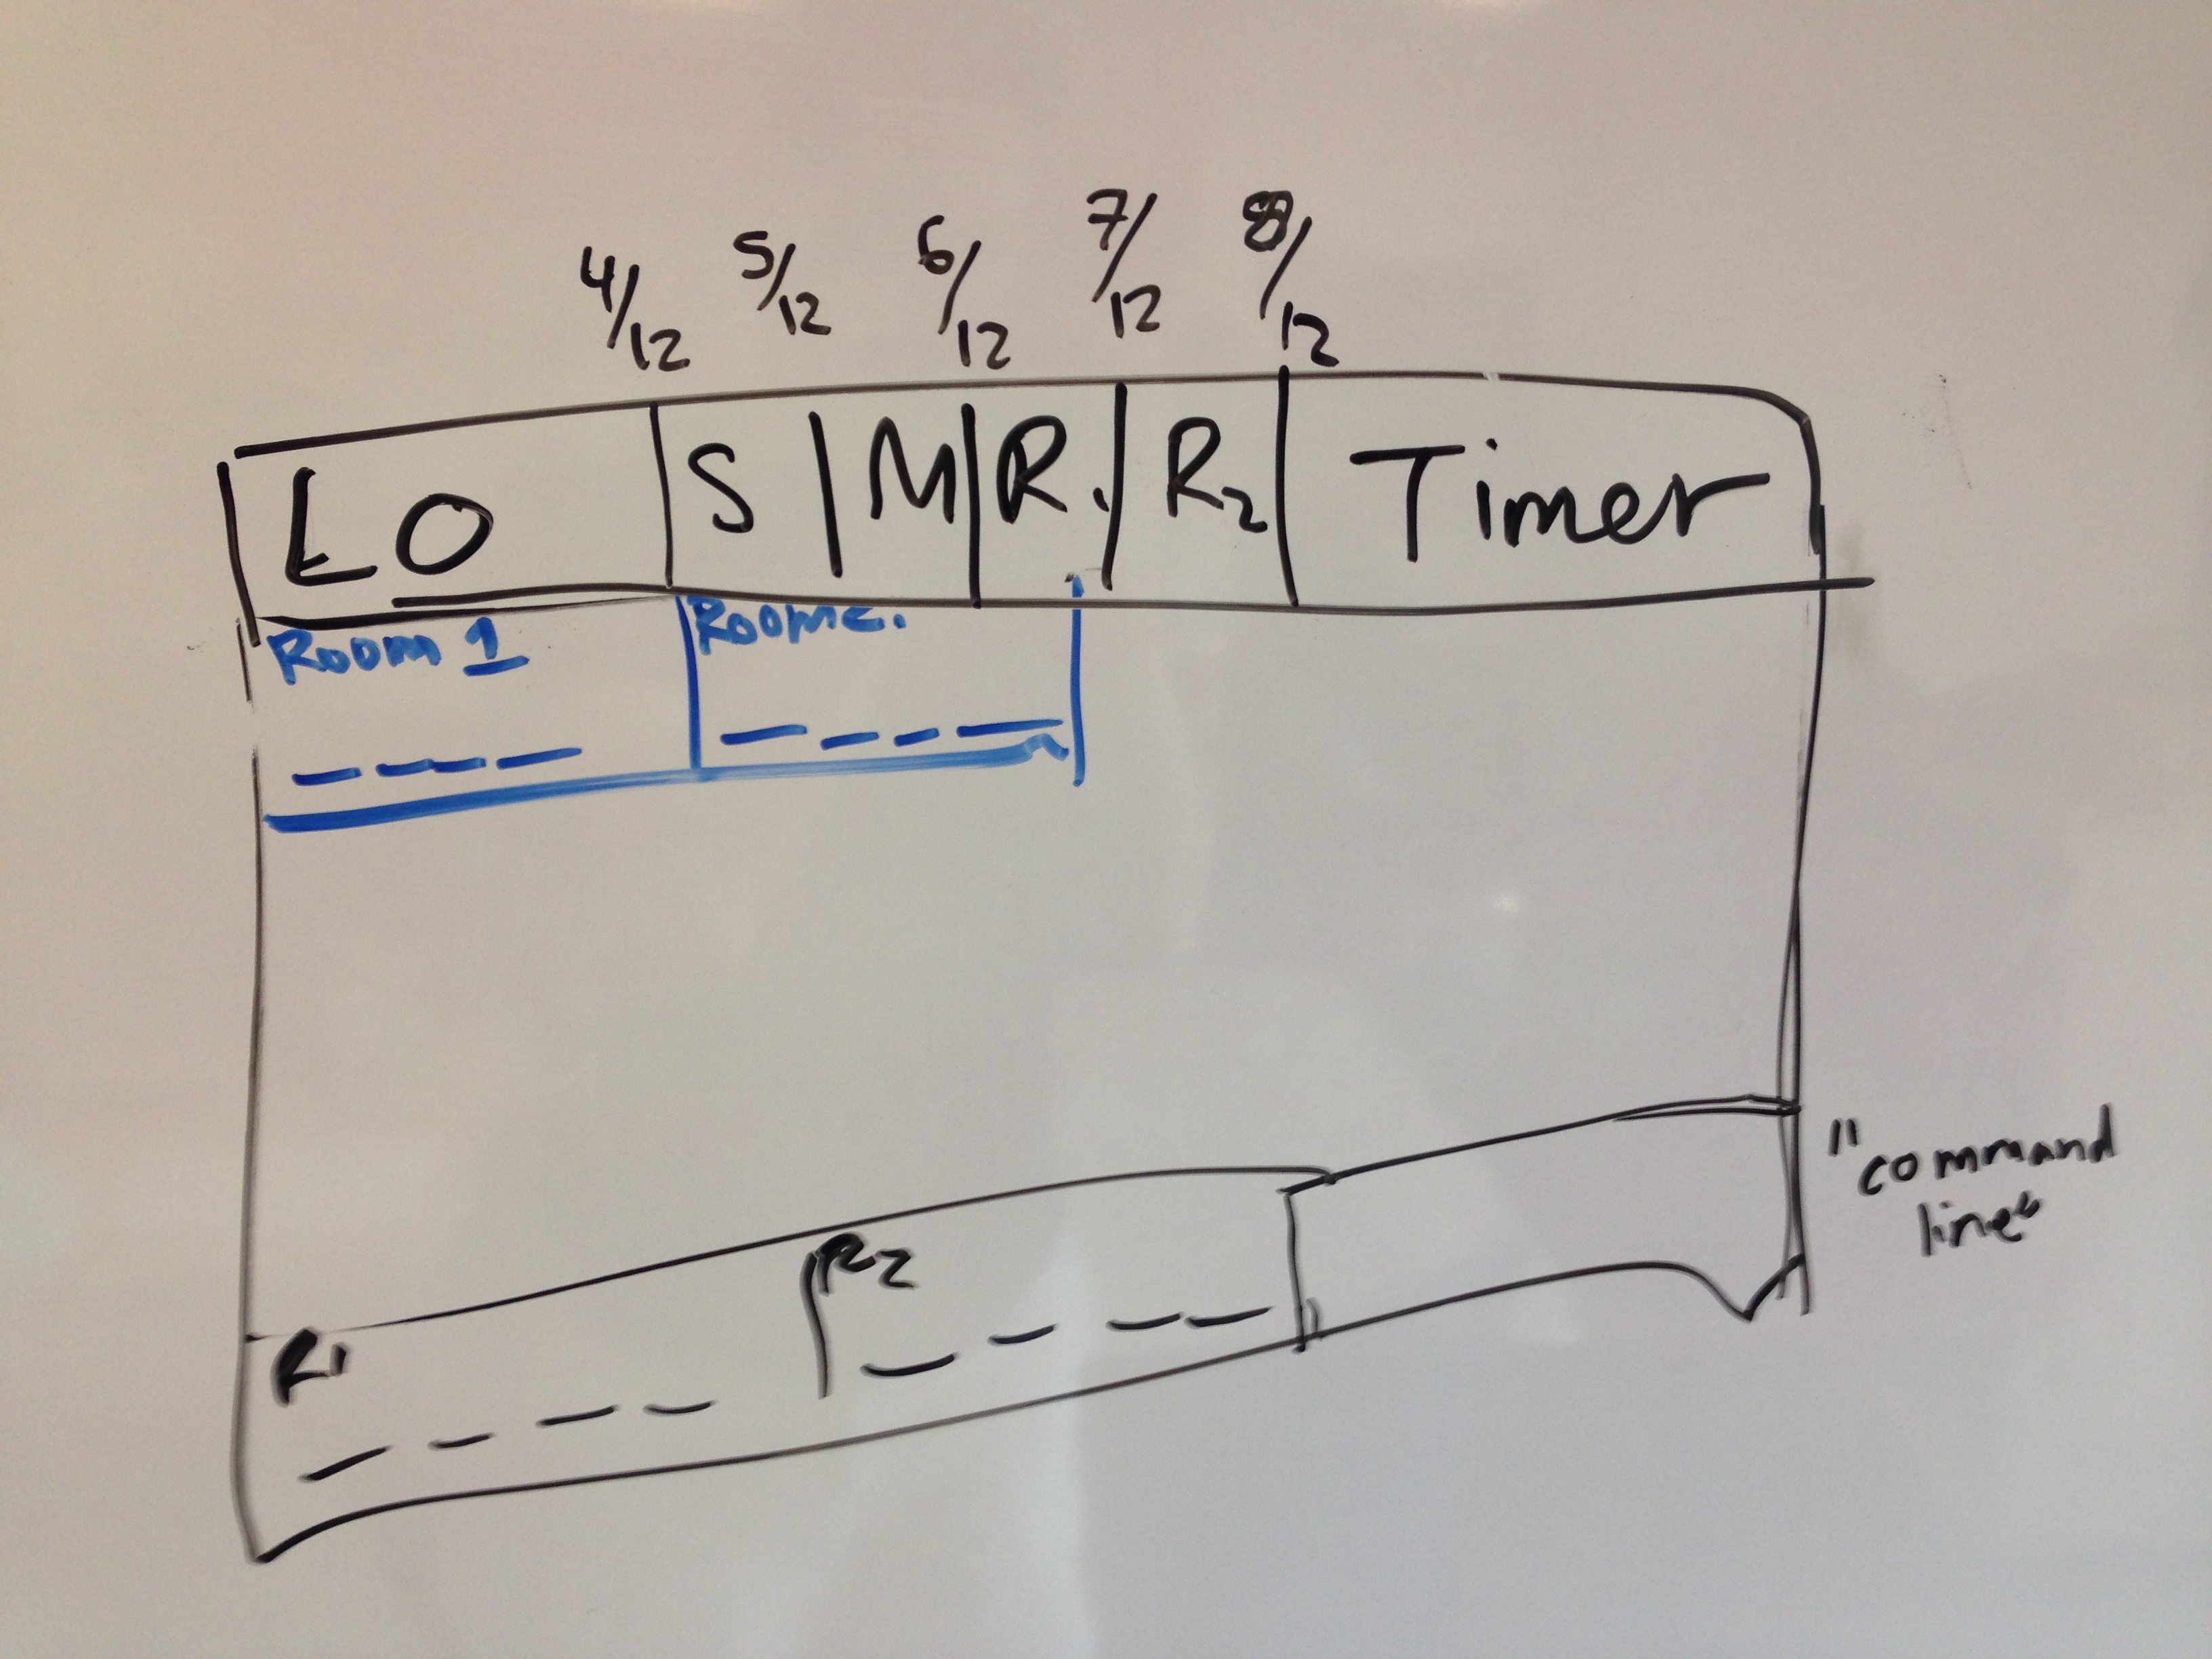 4/12 5/12 6/12 7/12 8/12
LO S M R1 R2 Timer
Room 1 Room 2.
"command
line"
R2
R1